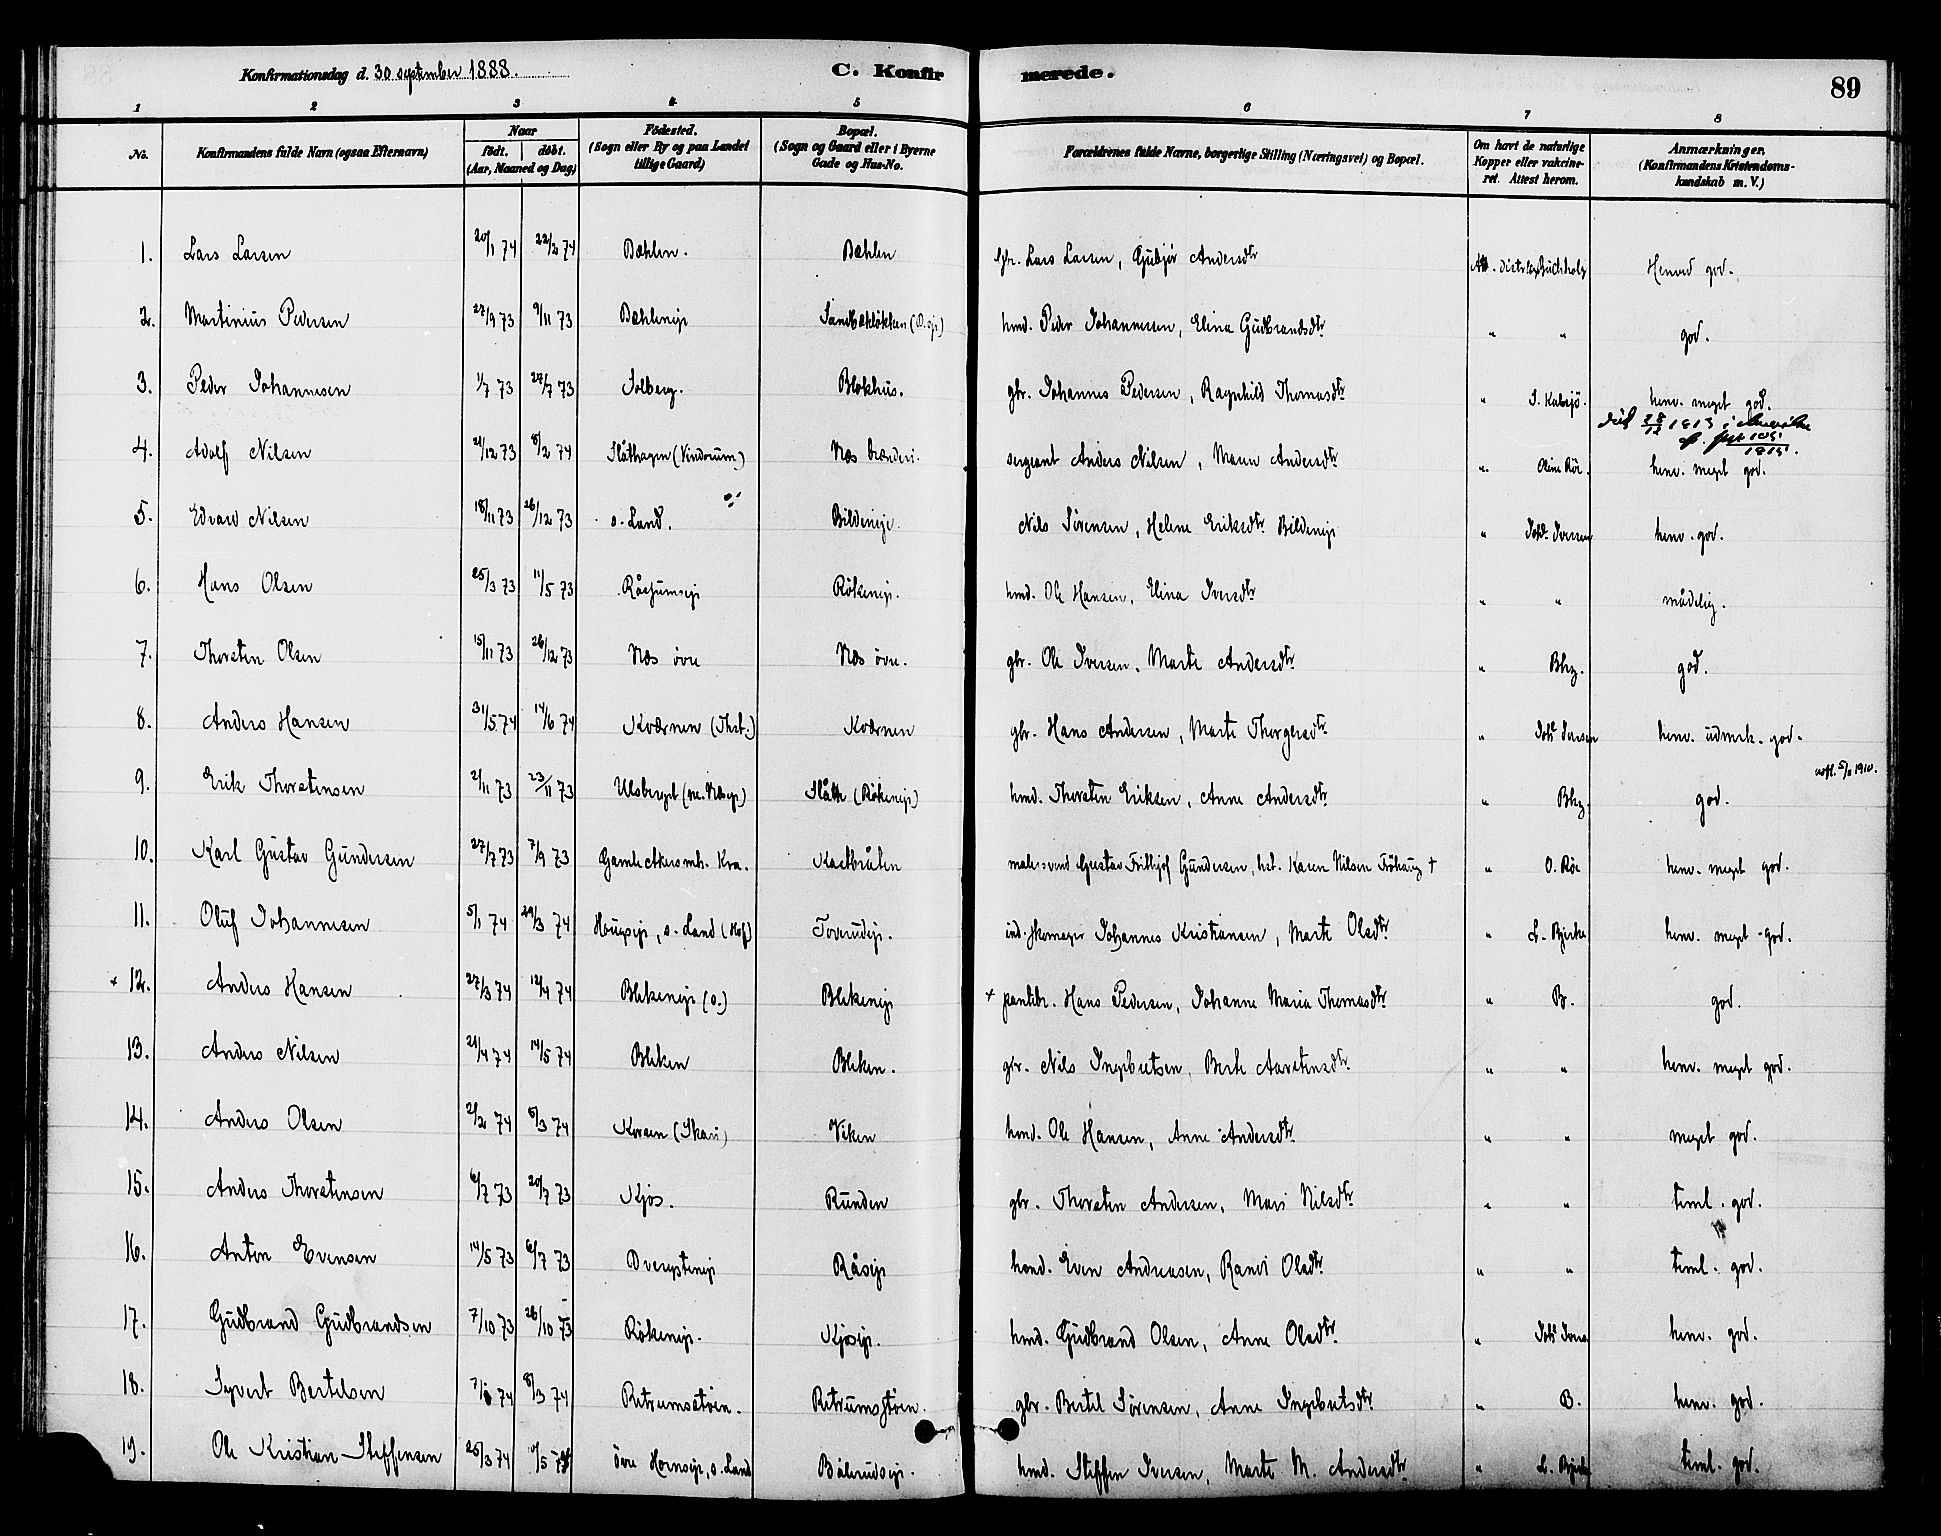 Konfirmationsdag d. 30 september 1888. C. Konfirmerede. 89
1 2 3 4 5 6 7 8
No. Konfirmandens fulde Navn (ogsaa Efternavn) Naar født. døbt. (Aar, Maaned og Dag) Fødested. (Sogn eller By og paa Landet tillige Gaard) Bopæl. (Sogn og Gaard eller i Byerne Gade og Hus-No. Forældrenes fulde Navne, borgerlige Stilling (Næringsvei) og Bopæl. Om havt de naturlige Kopper eller vakcineret. Attest herom. Anmærkninger. (Konfirmandens Kristendomskundskab m. V.)
1. Lars Larsen 20/1 74 22/2 74 Bæhlen. Bæhlen gbr. Lars Larsen, Gubjør Andersdtr Buchholz Henved god.
2. Martinius Pedersen 27/9 73 9/11 73 Bæhleneje hmd. Peder Johannesen, Elina Gudbrandsdtr " " god.
3. Peder Johannesen 1/7 73 27/7 73 Solberg. Blekhus. gbr. Johannes Pedersen, Ragnhild Thomasdtr " henv. meget god.
4. Adolf Nilsen 21/12 73 8/2 74 Slåthagen (Vindorum) Næs brænderi. sergeant Anders Nilsen, Maren Andersdtr " Oline Röe. henv. meget god.
5. Edvard Nilsen 18/11 73 26/12 73 s. Land. Bildeneje. Nils Sörensen, Helene Eriksdtr Bildeneje " Johs Iversen henv. god.
6. Hans Olsen 25/3 73 11/5 73 Rökeneje. hmd. Ole Hansen, Elina Iversdtr " " mådelig.
7. Thorsten Olsen 15/11 73 26/12 73 Næs övre Næs övre. gbr. Ole Iversen, Marte Andersdtr " Bhz. god.
8. Anders Hansen 31/5 74 14/6 74 Kværnen (Thst.) Kværnen gbr. Hans Andersen, Marte Thorgersdtr " Johs Iversen henv. udmrk. god.
9. Erik Thorstensen 2/11 73 23/11 73 Ulsberget Slåtte (Rökeneje) hmd. Thorsten Eriksen, Anne Andersdtr " Bhz. god. 1910.
10. Karl Gustav Gundersen 27/7 73 7/9 73 Gamle Akers mh. Kra. Kastbråten malersvend Gustav Frithjof Gundersen, hst. Karen Nilsen Fröhaug † " O. Röe henv. meget god.
11. Oluf Johannesen 5/1 74 29/3 74 Hougseje, s. Land (Hof) Toverudeje. ind. skomager Johannes Kristiansen, Marte Olsdtr " L. Bjerke henv. meget god.
+ 12. Anders Hansen 27/3 74 12/4 74 Blekeneje (o.) Blekeneje + pantebr. Hans Pedersen, Johanne Maria Thomasdtr " B. god.
13. Anders Nilsen 21/4 74 14/5 74 Bleken Bleken. gbr. Nils Ingebretsen, Berte Aarstensdtr " " henv. meget god.
14. Anders Olsen 2/2 74 8/3 74 Korsen (Skari) Viken hmd. Ole Hansen, Anne Andersdtr " " meget god.
15. Anders Thorstensen 6/7 73 20/7 73 Kjos. Runden gbr. Thorsten Andersen, Mari Nilsdtr " " teml. god.
16. Anton Evensen 14/5 73 6/7 73 Dvergsteneje Råseje hmd. Even Andreasen, Randi Olsdtr " " teml. god.
17. Gudbrand Gudbrandsen 7/10 73 26/10 73 Rökeneje. Kjoseje. hmd. Gudbrand Olsen, Anne Olsdtr " Johs Iversen henv. god.
18. Syvert Bertelsen 74 8/3 74 Retrumsstöen. Retrumsstöen. gbr. Bertel Sörensen, Anne Ingebretsdtr " B. henv. god.
19. Ole Kristian Steffensen 25/3 74 övre Hornseje, s. Land Bålerudseje. hmd. Steffen Iversen, Marte M. Andersdtr " L. Bjerke teml. god.